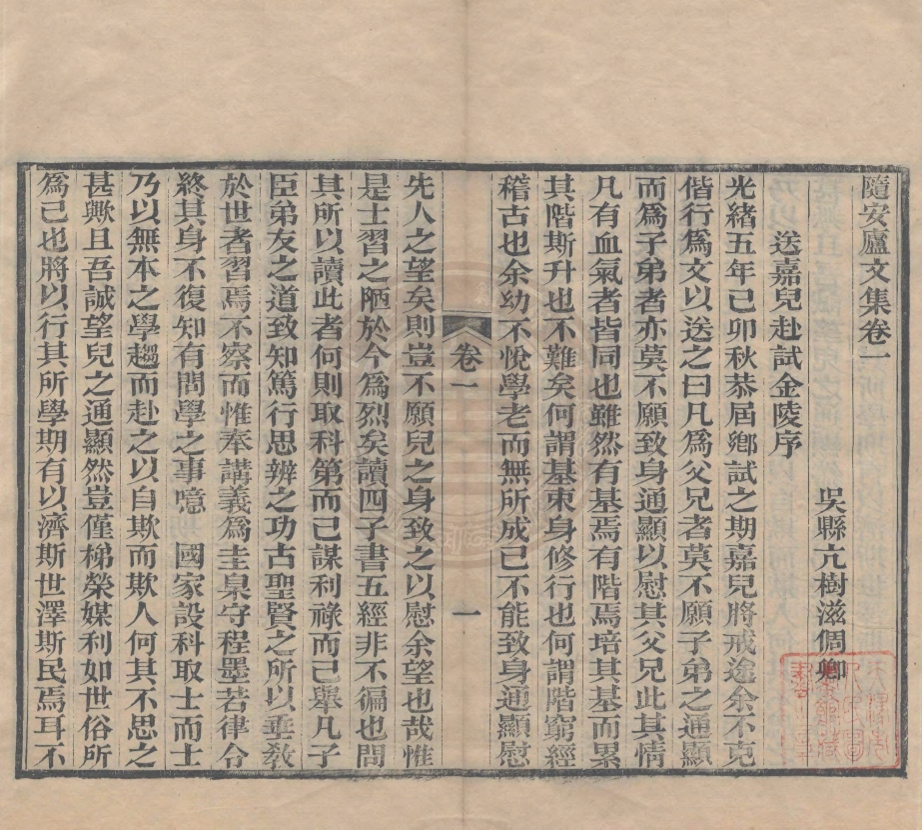 隨安廬文集卷一
吳縣亢樹滋倜卿
送嘉兒赴試金陵序
光緒五年己卯秋恭屆鄉試之期嘉兒將戒途余不克
偕行爲文以送之曰凡爲父兄者莫不願子弟之通顯
而爲子弟者亦莫不願致身通顯以慰其父兄此其情
凡有血氣者皆同也雖然有基焉有階焉培其基而累
其階斯升也不難矣何謂基束身修行也何謂階窮經
稽古也余幼不悅學老而無所成已不能致身通顯慰
卷一
一
先人之望矣則豈不願兒之身致之以慰余望也哉惟
是士習之陋於今爲烈矣讀四子書五經非不徧也問
其所以讀此者何則取科第而已謀利祿而已舉凡子
臣弟友之道致知篤行思辨之功古聖賢之所以垂敎
於世者習焉不察而惟奉講義爲圭臬守程墨若律令
終其身不復知有問學之事噫 國家設科取士而士
乃以無本之學趨而赴之以自欺而欺人何其不思之
甚歟且吾誠望兒之通顯然豈僅梯榮媒利如世俗所
爲已也將以行其所學期有以濟斯世澤斯民焉耳不